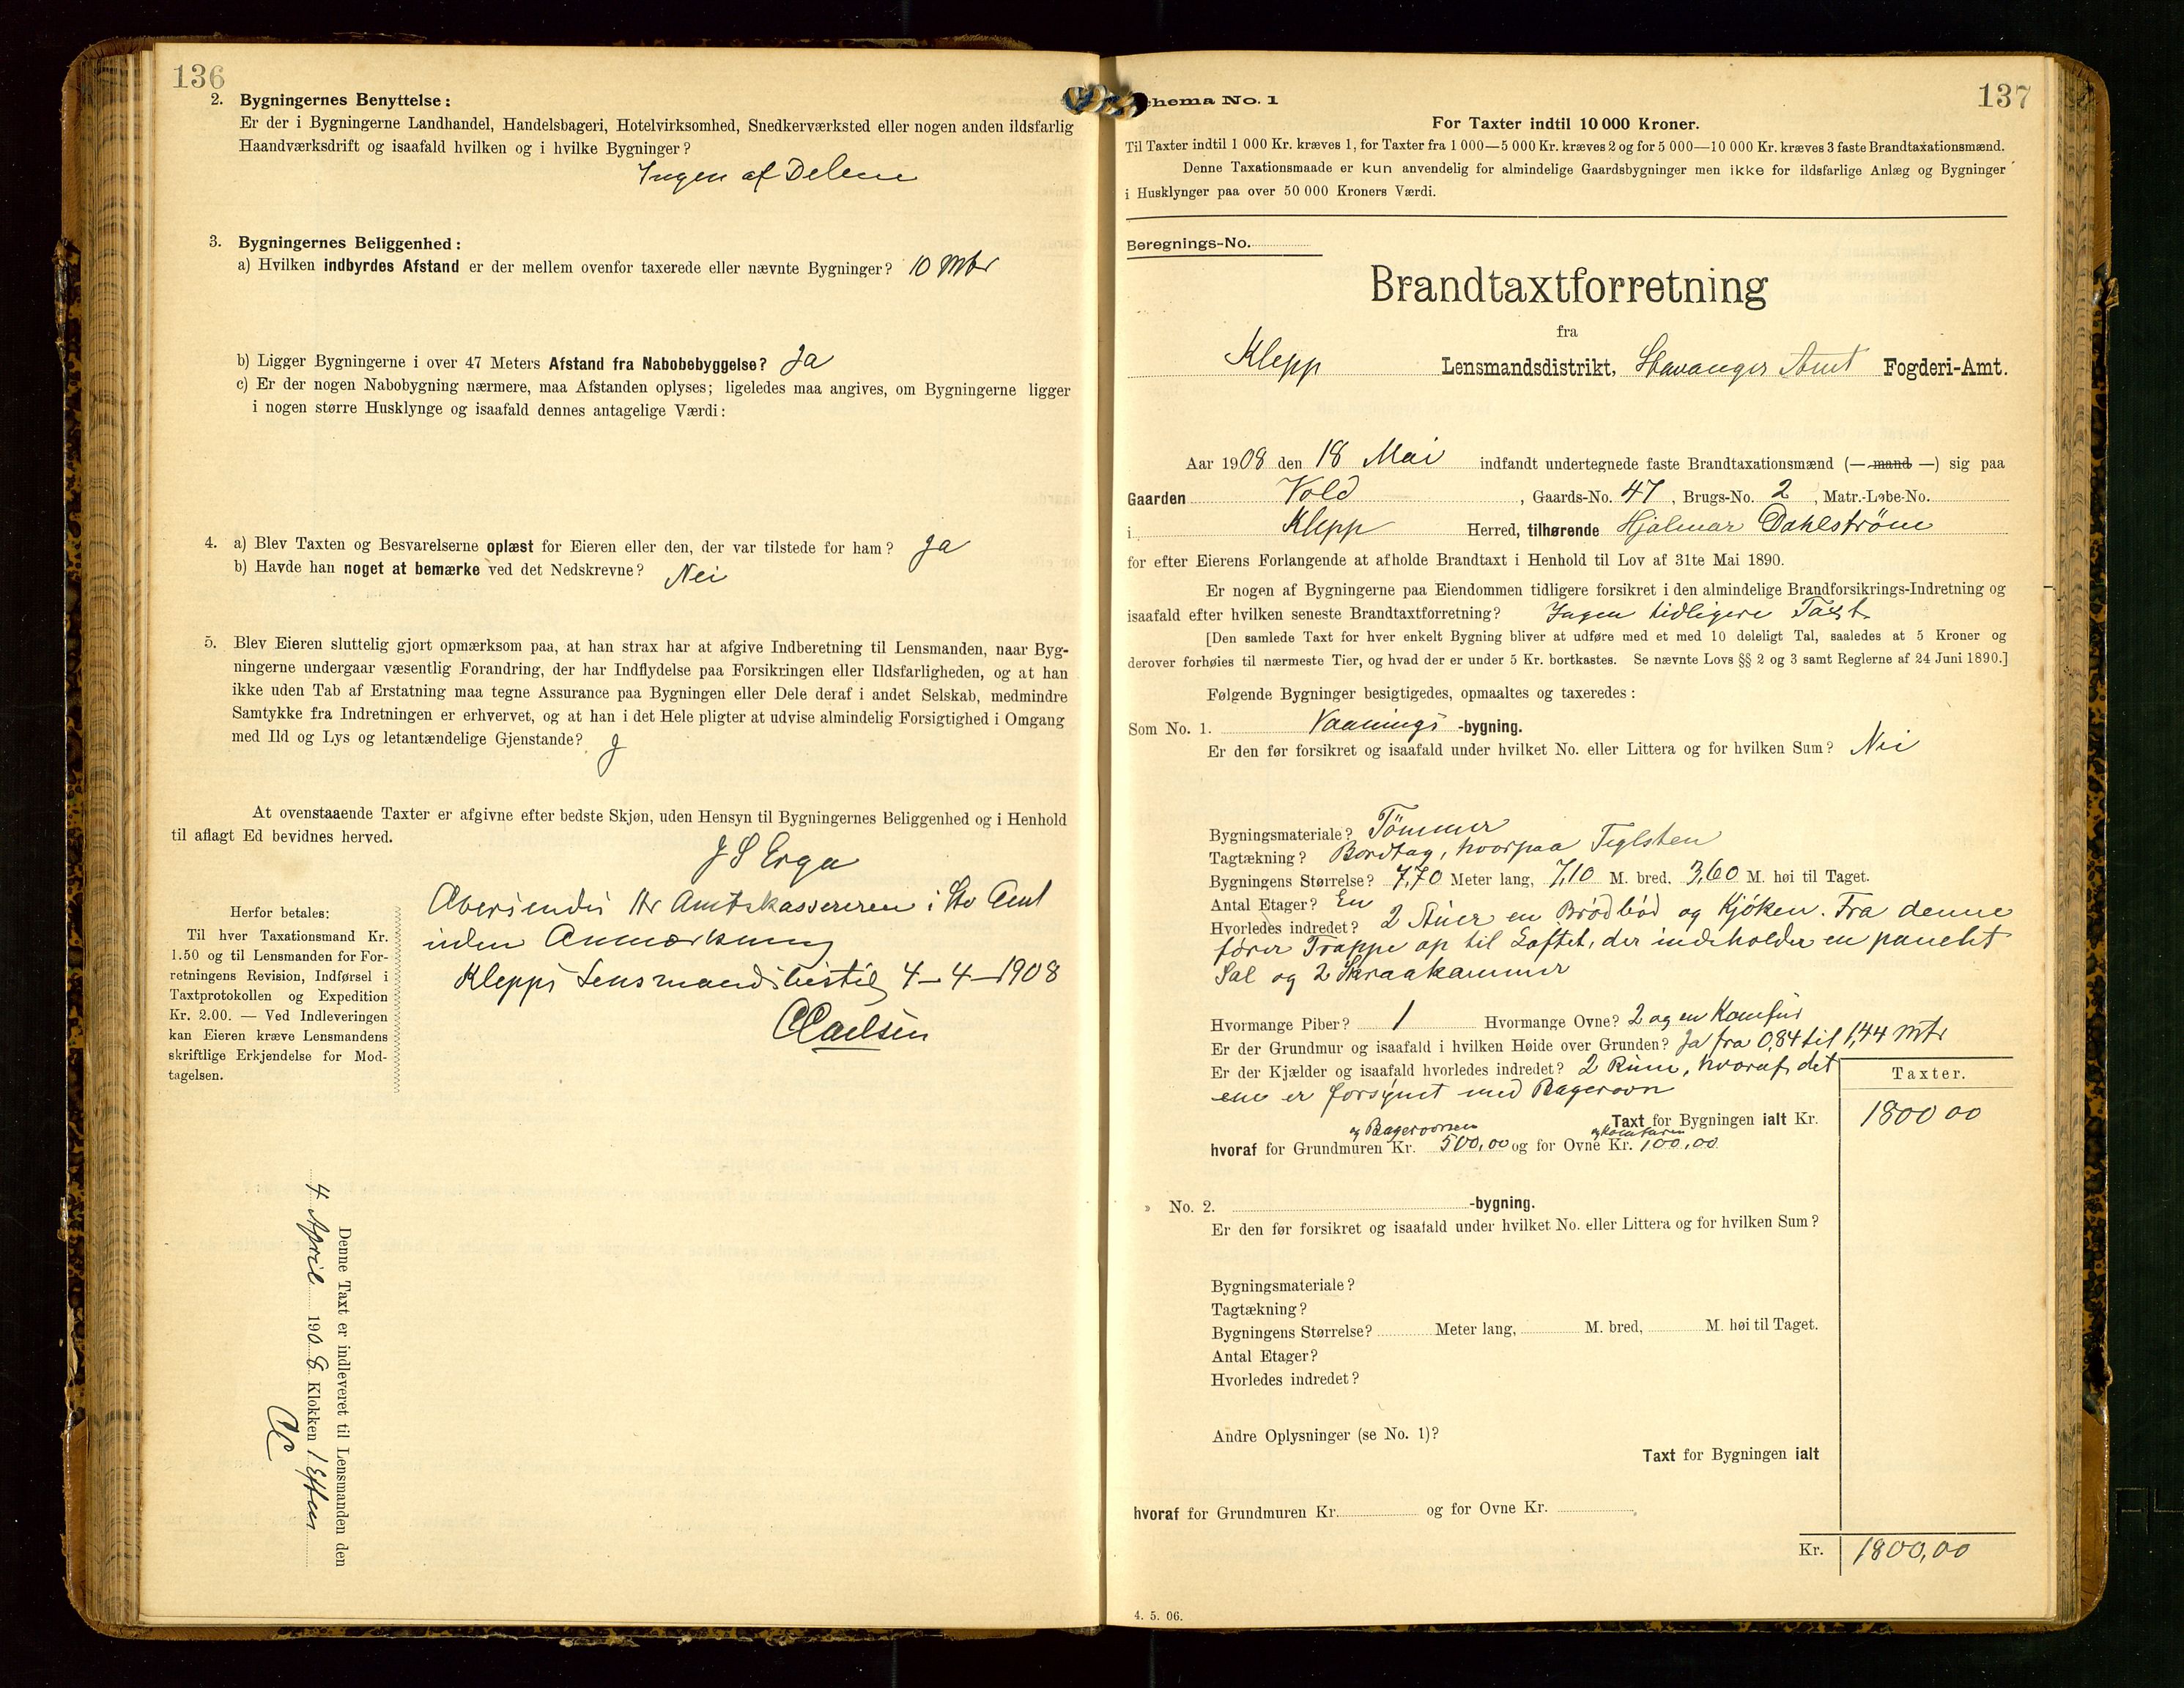 136
2. Bygningernes Benyttelse:
Er der i Bygningerne Landhandel, Handelsbageri, Hotelvirksomhed, Snedkerværksted eller nogen anden ildsfarlig
Haandværksdrift og isaafald hvilken og i hvilke Bygninger?
Ingen af Delene
3. Bygningernes Beliggenhed:
a) Hvilken indbyrdes Afstand er der mellem ovenfor taxerede eller nævnte Bygninger? 10 Mtr
b) Ligger Bygningerne i over 47 Meters Afstand fra Nabobebyggelse? Ja
c) Er der nogen Nabobygning nærmere, maa Afstanden oplyses; ligeledes maa angives, om Bygningerne ligger
i nogen større Husklynge og isaafald dennes antagelige Værdi:
4. a) Blev Taxten og Besvarelserne oplæst for Eieren eller den, der var tilstede for ham? Ja
b) Havde han noget at bemærke ved det Nedskrevne? Nei
5. Blev Eieren sluttelig gjort opmærksom paa, at han strax har at afgive Indberetning til Lensmanden, naar Byg-
ningerne undergaar væsentlig Forandring, der har Indflydelse paa Forsikringen eller Ildsfarligheden, og at han
ikke uden Tab af Erstatning maa tegne Assurance paa Bygningen eller Dele deraf i andet Selskab, medmindre
Samtykke fra Indretningen er erhvervet, og at han i det Hele pligter at udvise almindelig Forsigtighed i Omgang
med Ild og Lys og letantændelige Gjenstande? J
At ovenstaaende Taxter er afgivne efter bedste Skjøn, uden Hensyn til Bygningernes Beliggenhed og i Henhold
til aflagt Ed bevidnes herved.
J S Erga
Oversendes Hr Amtskassereren i Stv Amt
uden Anmærkning
Klepps Lensmandsbestil 4-4-1908
Herfor betales:
Til hver Taxationsmand Kr.
1.50 og til Lensmanden for For-
retningens Revision, Indførsel i
Taxtprotokollen og Expedition
Kr. 2.00. — Ved Indleveringen
kan Eieren kræve Lensmandens
skriftlige Erkjendelse for Mod-
tagelsen.
Denne Taxt er indleveret til Lensmanden den
4 April 1908 Klokken 1 Efterm
137
Schema No. 1
For Taxter indtil 10 000 Kroner.
Til Taxter indtil 1 000 Kr. kræves 1, for Taxter fra 1 000—5 000 Kr. kræves 2 og for 5 000—10 000 Kr. kræves 3 faste Brandtaxationsmænd.
Denne Taxationsmaade er kun anvendelig for almindelige Gaardsbygninger men ikke for ildsfarlige Anlæg og Bygninger
i Husklynger paa over 50 000 Kroners Værdi.
Beregnings-No.
Brandtaxtforretning
fra
Klepp Lensmandsdistrikt, Stavanger Amt Fogderi-Amt.
Aar 1908 den 18 Mai indfandt undertegnede faste Brandtaxationsmænd (— mand —) sig paa
Gaarden Vold, Gaards-No. 47, Brugs-No. 2, Matr.-Løbe-No.
i Klepp Herred, tilhørende Hjalmar Dahlstrøm
for efter Eierens Forlangende at afholde Brandtaxt i Henhold til Lov af 31te Mai 1890.
Er nogen af Bygningerne paa Eiendommen tidligere forsikret i den almindelige Brandforsikrings-Indretning og
isaafald efter hvilken seneste Brandtaxtforretning? Ingen tidligere Taxt
[Den samlede Taxt for hver enkelt Bygning bliver at udføre med et med 10 deleligt Tal, saaledes at 5 Kroner og
derover forhøies til nærmeste Tier, og hvad der er under 5 Kr. bortkastes. Se nævnte Lovs §§ 2 og 3 samt Reglerne af 24 Juni 1890.]
Følgende Bygninger besigtigedes, opmaaltes og taxeredes:
Som No. 1. Vaanings -bygning.
Er den før forsikret og isaafald under hvilket No. eller Littera og for hvilken Sum? Nei
Bygningsmateriale? Tømmer
Tagtækning? Bordtag, hvorpaa Teglsten
Bygningens Størrelse? 7,70 Meter lang, 7,10 M. bred, 3,60 M. høi til Taget.
Antal Etager? En
Hvorledes indredet? 2 Stuer en Brødbod og Kjøken. Fra denne
fører Trappe op til Loftet, der indeholder en panelt
Sal og 2 Skraakammer
Hvormange Piber? 1 Hvormange Ovne? 2 og en Komfur
Er der Grundmur og isaafald i hvilken Høide over Grunden? Ja fra 0,84 til 1,44 Mtr
Er der Kjælder og isaafald hvorledes indredet? 2 Rum, hvoraf det
ene er forsynet med Bagerovn
Taxter.
Taxt for Bygningen ialt Kr. 1800 00
og Bagerovnen og Komfuren
hvoraf for Grundmuren Kr. 500,00 og for Ovne Kr. 100,00
» No. 2. -bygning.
Er den før forsikret og isaafald under hvilket No. eller Littera og for hvilken Sum?
Bygningsmateriale?
Tagtækning?
Bygningens Størrelse? Meter lang, M. bred, M. høi til Taget.
Antal Etager?
Hvorledes indredet?
Andre Oplysninger (se No. 1)?
Taxt for Bygningen ialt
hvoraf for Grundmuren Kr. og for Ovne Kr.
Kr. 1800,00
4. 5. 06.